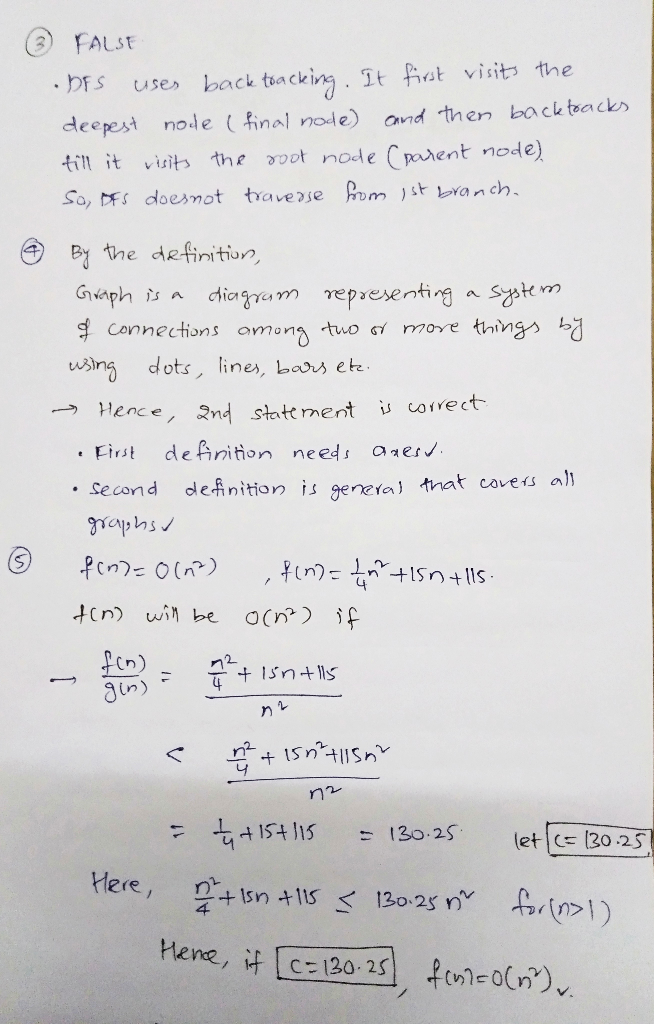 ③ FALSE
• DFS uses backtracking. It first visits the
deepest node (final node) and then backtracks
till it visits the root node (parent node)
So, DFS doesnot traverse from 1st branch.
④ By the definition,
Graph is a diagram representing a system
of connections among two or more things by
using dots, lines, bars etc.
→ Hence, 2nd statement is correct
• First definition needs axes✓.
• Second definition is general that covers all
graphs✓
⑤ f(n) = O(n²) , f(n) = 1/4 n² + 15n + 115.
f(n) will be O(n²) if
→ f(n)/g(n) = (n²/4 + 15n + 115)/n²
< (n²/4 + 15n² + 115n²)/n²
= 1/4 + 15 + 115 = 130.25 let C = 130.25
Here, n²/4 + 15n + 115 ≤ 130.25 n² for (n>1)
Hence, if C = 130.25, f(n) = O(n²)✓.